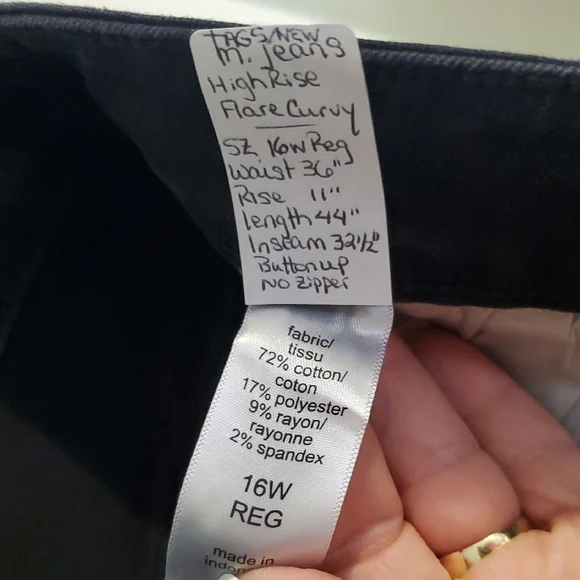 TAGS/NEW
m. jeans
High Rise
Flare Curvy
SZ 16W Reg
Waist 36"
Rise 11"
length 44"
Inseam 32 1/2"
Button up
No Zipper
fabric/
tissu
72% cotton/
coton
17% polyester
9% rayon/
rayonne
2% spandex
16W
REG
made in